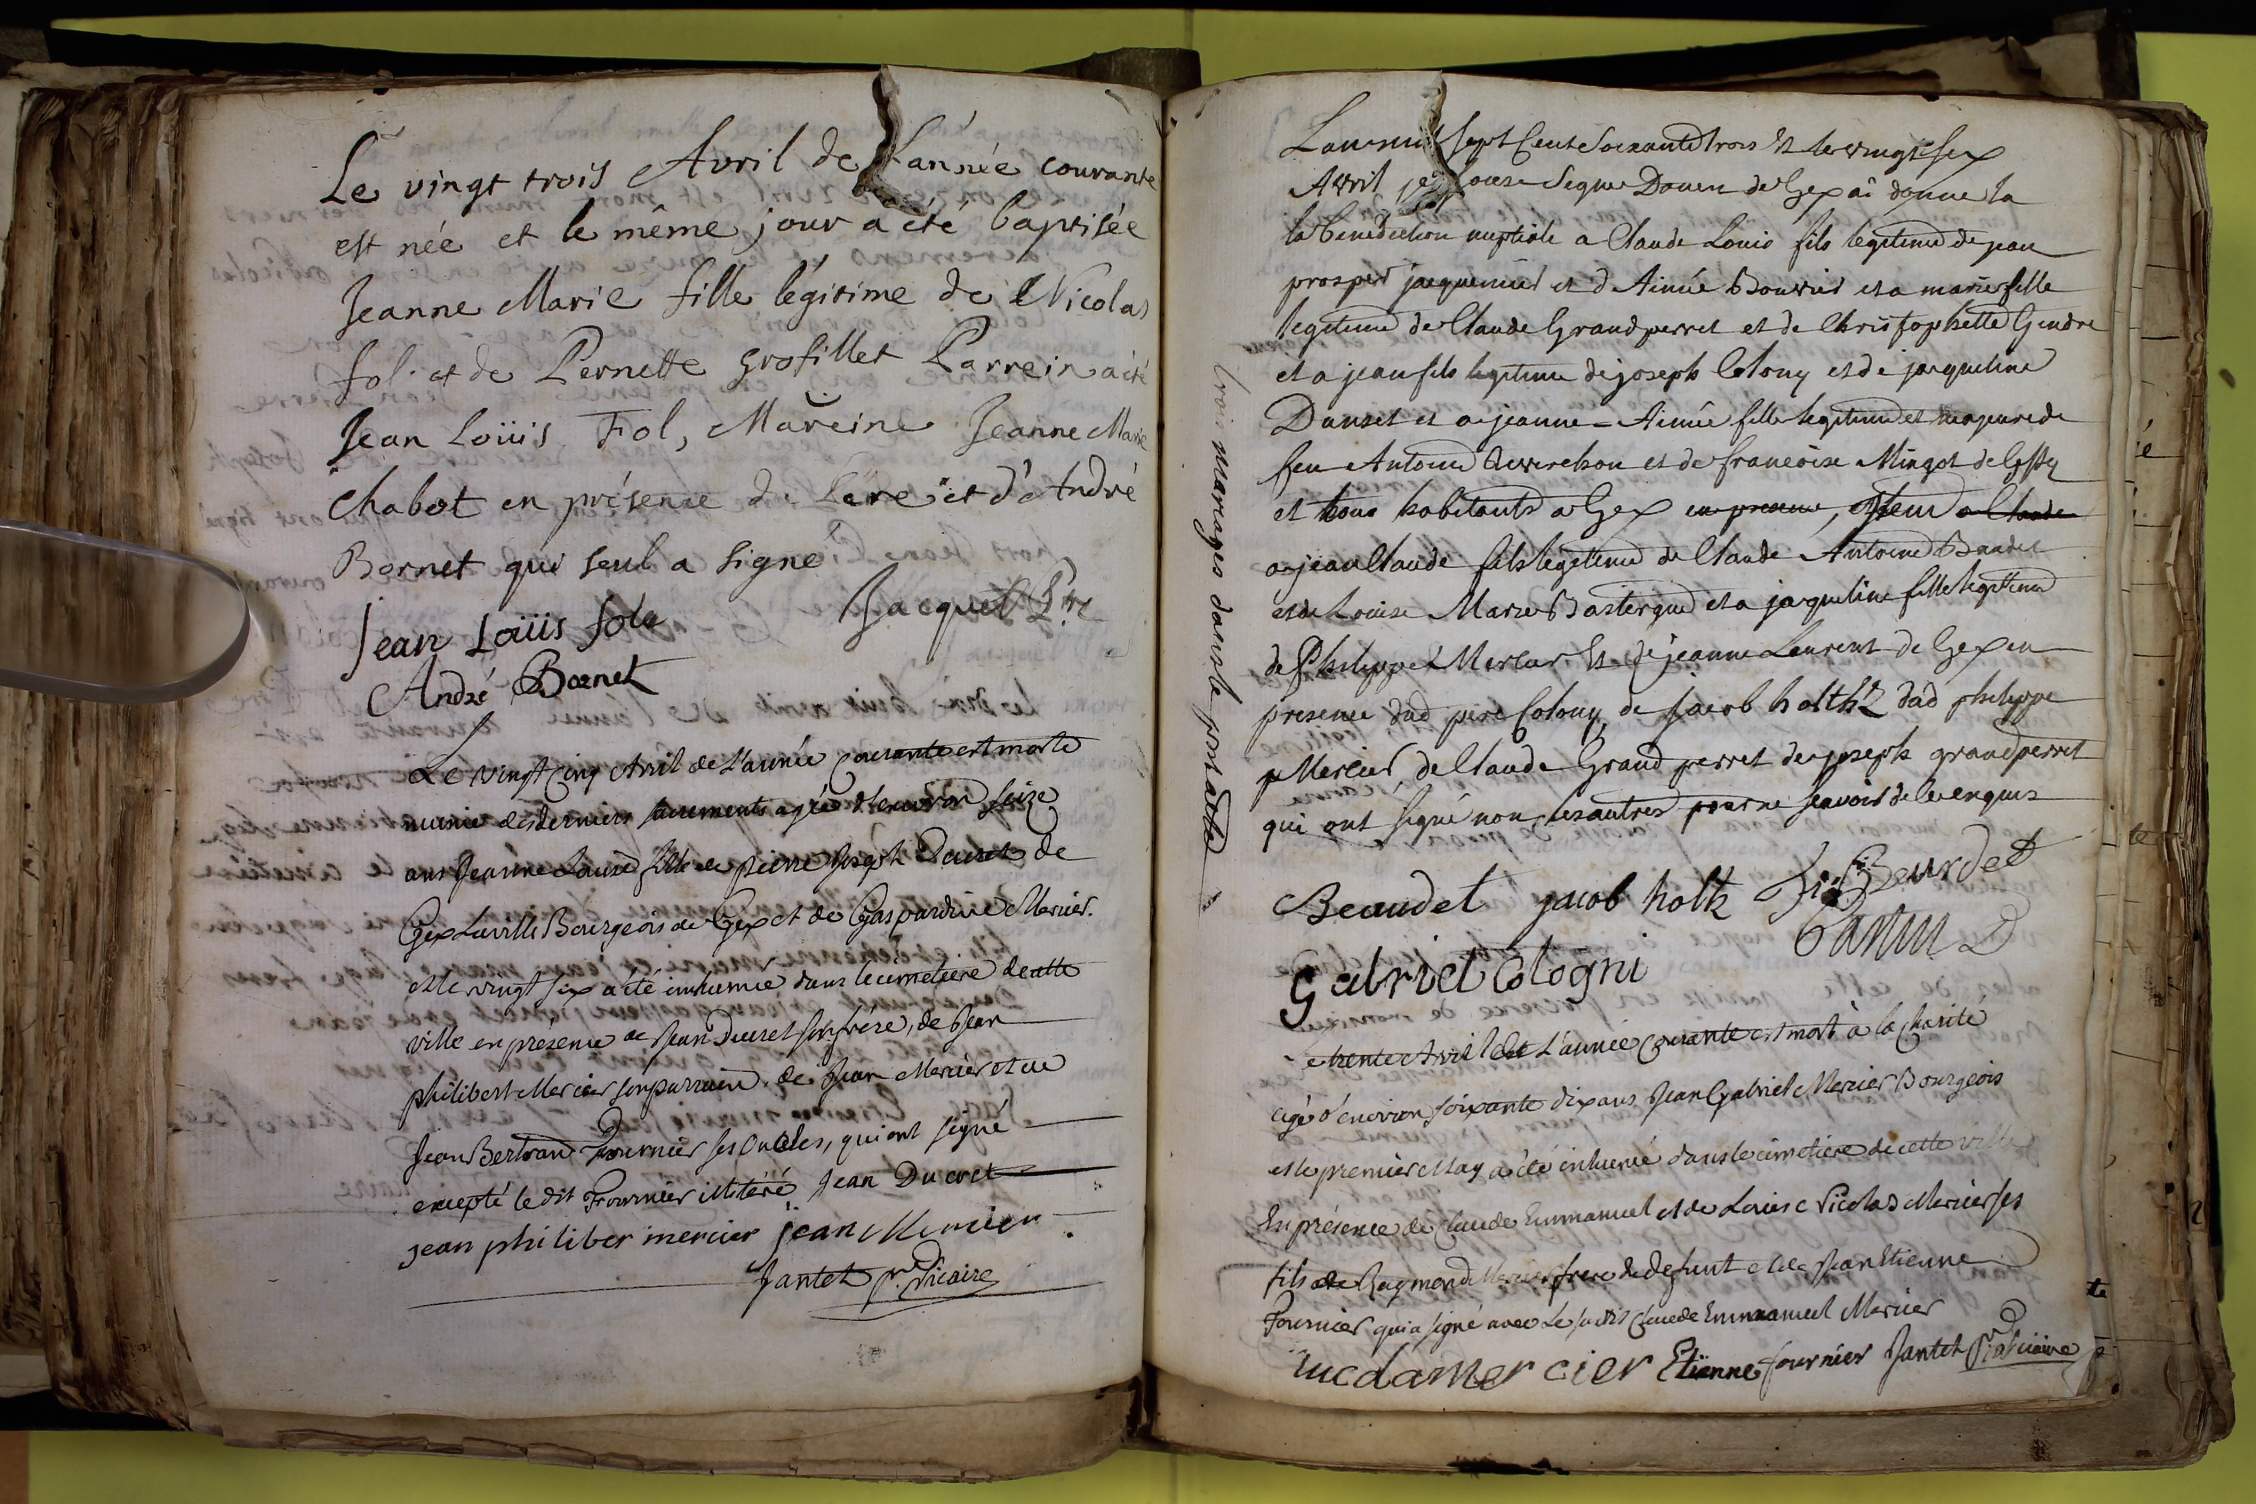 Le vingt trois Avril de L'année courante
est née et le même jour a été baptisée
Jeanne Marie fille légitime de Nicolas
fol. et de Pernette grosfillet Parrein a été
Jean Loüis Fol, Mareine Jeanne Marie
Chabot en présence du Père et d'André
Bornet qui seul a signé
Jacquet Ptre
Jean Loüis fole
André Bornet
Le vingt Cinq Avril de L'année Courante est morte
munie des derniers sacrements agée d'environ seize
ans Jeanne Louise fille de pierre Joseph Ducret de
Gex La ville Bourgeois de Gex et de Gaspardine Mercier.
et le vingt six a été inhumée dans le cimetiere de cette
ville en présence de Jean Ducret son frére, de Jean
philibert Mercier son parrain, de Jean Mercier et de
Jean Bertrand Fournier ses oncles, qui ont signé
excepté le dit Fournier illitéré Jean Ducret
jean philiber mercier jean Mercier
Jantet pre Vicaire
trois mariages dans le present acte
L'an mil sept Cent Soixante trois et le vingt six
Avril je sousigné Doien de Gex ai donné la
la benediction nuptiale a Claude Louis fils legitime de jean
prosper jacquemier et d'Aimée Bouvier et a marie fille
legitime de Claude Grandperret et de Christophette Gendre
et a jean fils legitime de joseph Colony et de jacqueline
Danset et a jeanne-Aimée fille legitime et majeure de
feu Antoine et de francoise Mingot de Cessy
et tous habitants a Gex en presence,
a jean Claude fils legitime de Claude Antoine Baudet
et de Louise Marie Bastergue et a jaqueline fille legitime
de Philippe Mercier et de jeanne Laurent de Gex en
presence dud pere Colony, de jacob holthz dud philippe
Mercier, de Claude Grand perret de joseph grandperret
qui ont signé non les autres pour ne scavoir de ce enquis
Beaudet jacob holtz
Gabriel Cologni
trente Avril de L'année Courante est mort à la Charité
agé d'environ soixante dix ans Jean Gabriel Mercier Bourgeois
et le premier May a été inhumé dans le cimetiere de cette ville
En présence de Claude Emmanuel et de Louis Nicolas Mercier ses
fils de Raymond Mercier frere du defunt et de Jean Etienne
Fournier qui a signé avec Le susdit Claude Emmanuel Mercier
mercier Etienne fournier Jantet pre Vicaire